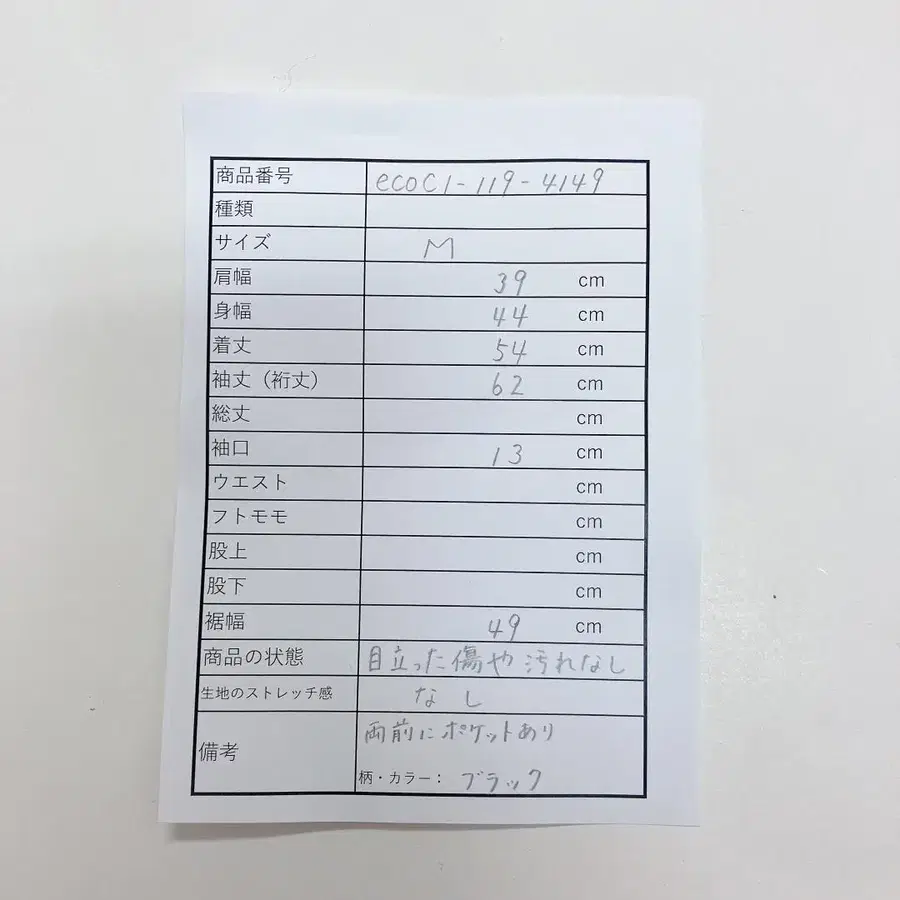 商品番号 ecoC1-119-4149
種類
サイズ M
肩幅 39 cm
身幅 44 cm
着丈 54 cm
袖丈（裄丈） 62 cm
総丈 cm
袖口 13 cm
ウエスト cm
フトモモ cm
股上 cm
股下 cm
裾幅 49 cm
商品の状態 目立った傷や汚れなし
生地のストレッチ感 なし
備考 両前にポケットあり
柄・カラー： ブラック